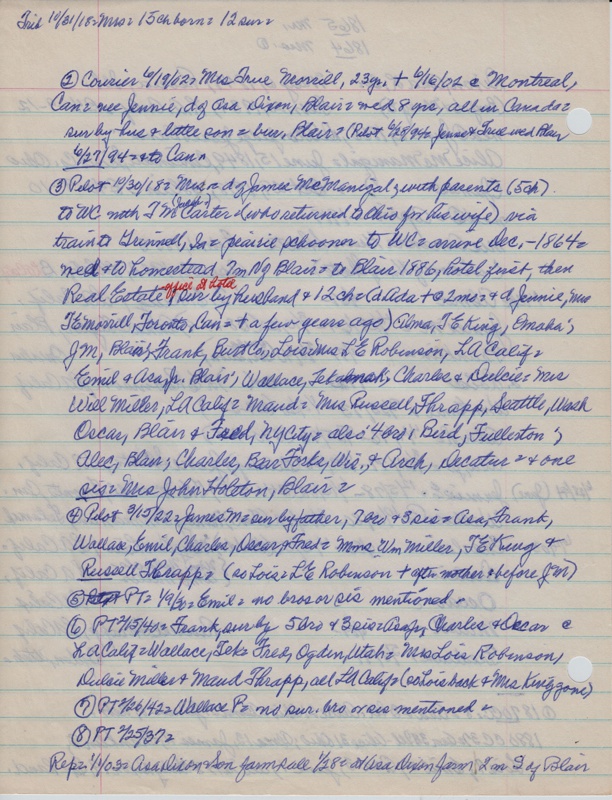 Trib 10/31/18 = Mrs = 15 ch born = 12 sur =
② Courier 6/19/02 = Mrs True Morrill, 23 yr, + 6/16/02 @ Montreal,
Can = nee Jennie, d of Asa Dixon, Blair = wed 8 yrs, all in Canada =
sur by hus & little son = bur, Blair = (Pilot 6/28/94 Jennie & True wed Blair
6/27/94 = to Can
③ Pilot 10/30/18 = Mrs = d of James McManigal, with parents (5 ch)
to WC with T M Carter (who returned to Ohio for his wife) via
train to Grinnell, Ia = prairie schooner to WC = arrive Dec, -1864 =
wed & to homestead, 7 m N of Blair = to Blair 1886, hotel first, then
Real Estate office at Hotel = sur by husband & 12 ch = (d Ada + @ 2 mo = & d Jennie, Mrs
T E Morrill, Toronto, Can = + a few years ago) Alma, T E King, Omaha;
J M, Blair; Frank, Burt Co, Lois = Mrs L E Robinson, LA Calif =
Emil & Asa, Jr, Blair; Wallace, Tekamah; Charles & Dulcie = Mrs
Will Miller, LA Calif = Maud = Mrs Russell Thrapp, Seattle, Wash
Oscar, Blair & Fred, NY City = also 4 bro; Bird, Fullerton;
Alec, Blair; Charles, Forks, Wis, & Arch, Decatur = & one
sis = Mrs John Holston, Blair =
④ Pilot 3/15/22 = James M = sur by father, 7 bro & 3 sis = Asa, Frank,
Wallace, Emil, Charles, Oscar, & Fred = Mmes Wm Miller, T E King &
Russell Thrapp = (so Lois = L E Robinson + after mother & before J M)
⑤ PT = 1/9/30 = Emil = no bros or sis mentioned -
⑥ PT 2/15/40 = Frank, sur by 5 bro & 3 sis = Asa Jr, Charles & Oscar @
LA Calif = Wallace, Tek = Fred, Ogden, Utah = Mrs Lois Robinson,
Dulcie Miller & Maud Thrapp, all LA Calif = (so Lois back & Mrs King gone)
⑦ PT 2/26/42 = Wallace P = no sur. bro or sis mentioned =
⑧ PT 2/25/37 =
Rep = 1/1/03 = Asa Dixon = Son farm sale 1/28 = at Asa Dixon farm, 2 m S of Blair